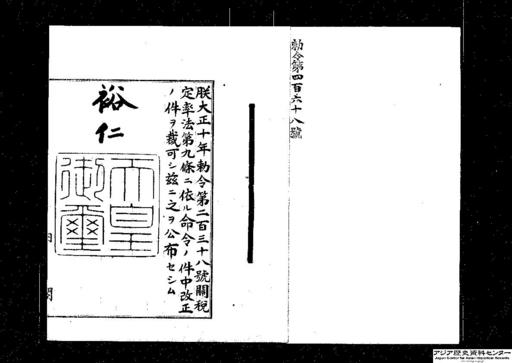 勅令第四百六十八號
朕大正十年勅令第二百三十八號關稅
定率法第九條ニ依ル命令ノ件中改正
ノ件ヲ裁可シ茲ニ之ヲ公布セシム
裕仁
天皇
御璽
内
閣
アジア歴史資料センター
Japan Center for Asian Historical Records